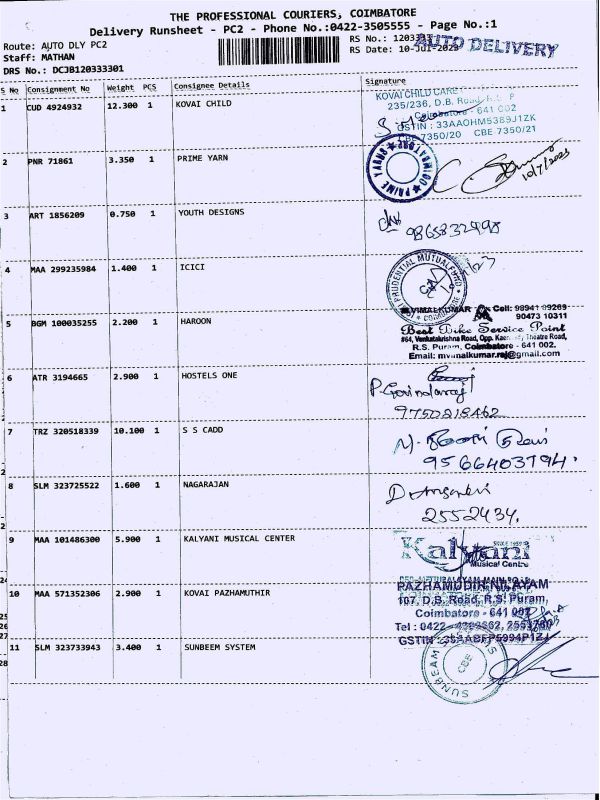 THE PROFESSIONAL COURIERS, COIMBATORE
Delivery Runsheet - PC2 - Phone No.:0422-3505555 - Page No.:1
Route: AUTO DLY PC2
RS No.: 1203333
AUTO DELIVERY
Staff: MATHAN
RS Date: 10-Jul-2023
DRS No.: DCJB120333301
S No Consignment No Weight PCS Consignee Details Signature
1 CUD 4924932 12.300 1 KOVAI CHILD
KOVAI CHILD CARE
235/236, D.B. Road, R.S. P
Coimbatore - 641 002
GSTIN : 33AAOHM5389J1ZK
CBE 7350/20 CBE 7350/21
2 PNR 71861 3.350 1 PRIME YARN
PRIME YARNS
10/7/2023
3 ART 1856209 0.750 1 YOUTH DESIGNS
9865832498
4 MAA 299235984 1.400 1 ICICI
PRUDENTIAL MUTUAL FUND
COIMBATORE
5 BGM 100035255 2.200 1 HAROON
M.VIMALKUMAR Cell: 98941 89269
90473 10311
Best Bike Service Point
#64, Venkatakrishna Road, Opp. Theatre Road,
R.S. Puram, Coimbatore - 641 002.
Email: mvimalkumar.raj@gmail.com
6 ATR 3194665 2.900 1 HOSTELS ONE
P. Govindaraj
9750218462
7 TRZ 320518339 10.100 1 S S CADD
9566403794
8 SLM 323725522 1.600 1 NAGARAJAN
2552434.
9 MAA 101486300 5.900 1 KALYANI MUSICAL CENTER
Kalyani
Musical Centre
10 MAA 571352306 2.900 1 KOVAI PAZHAMUTHIR
PAZHAMUDIR NILAYAM
107, D.B. Road, R.S. Puram,
Coimbatore - 641 002
Tel : 0422
GSTIN
11 SLM 323733943 3.400 1 SUNBEEM SYSTEM
SUNBEAM
CBE